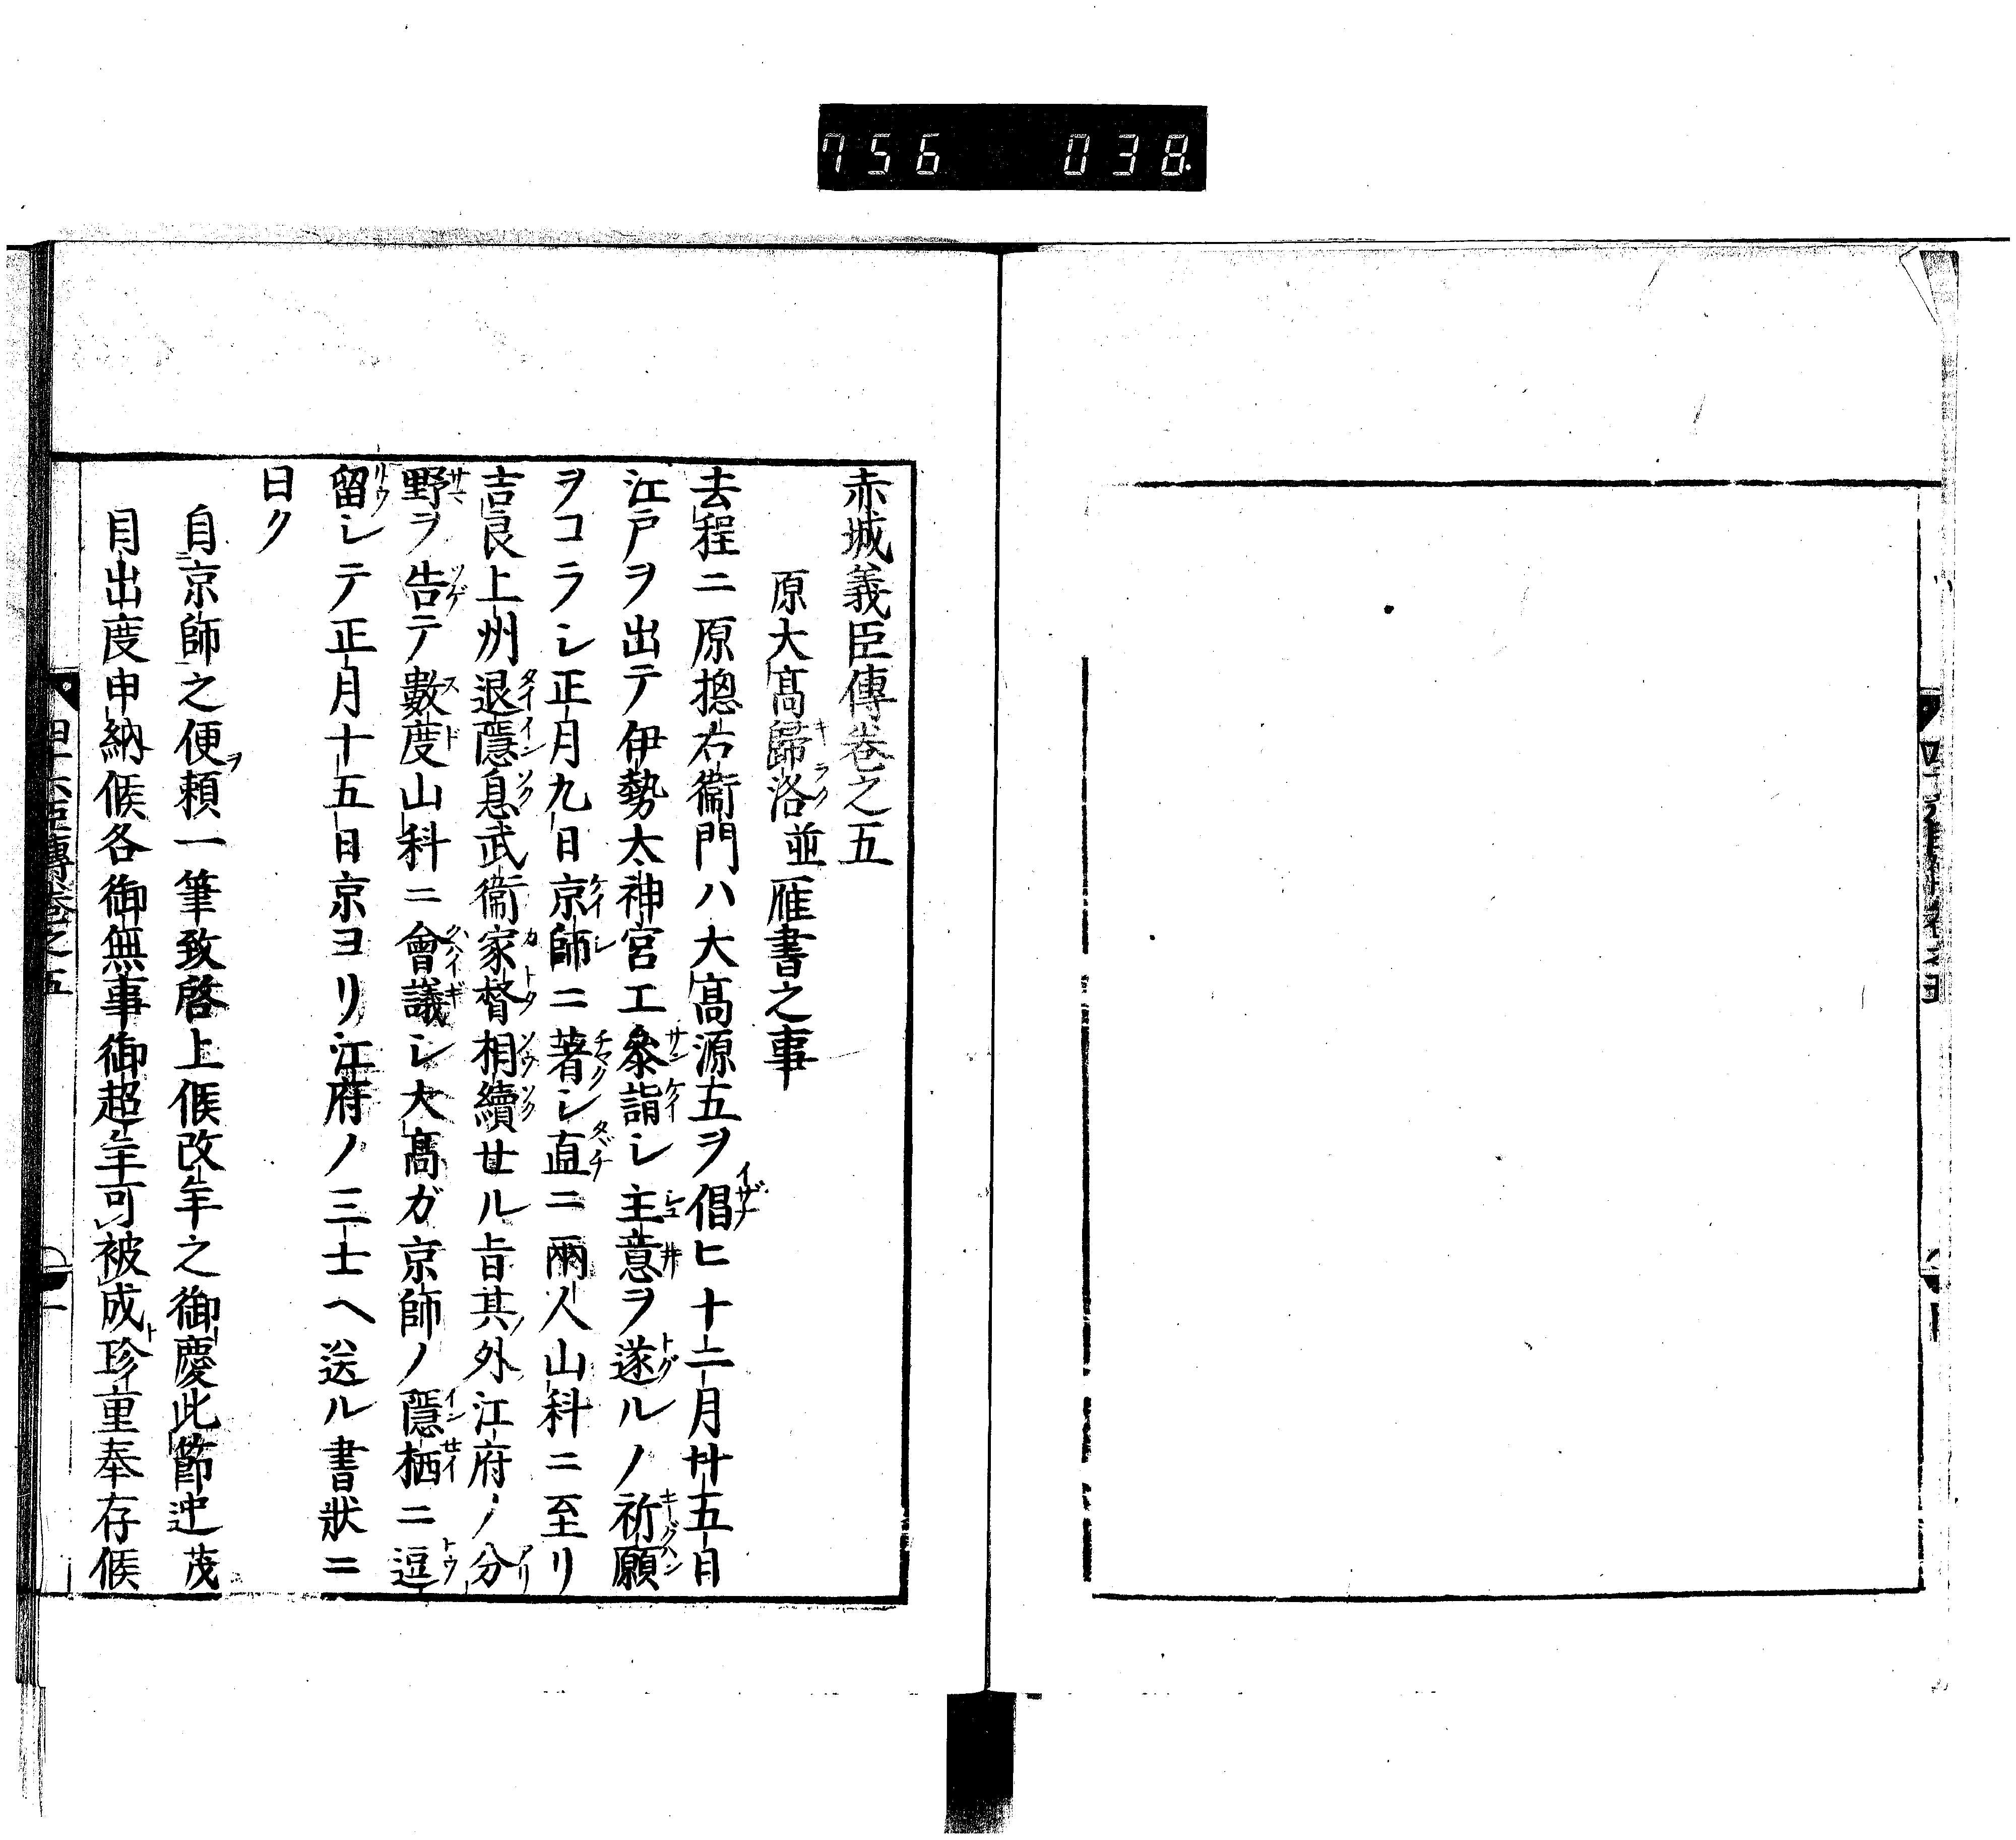 756 038
赤城義臣傳巻之五
原大髙歸洛並雁書之事
去程ニ原摠右衞門ハ大髙源五ヲ倡ヒ十二月廿五日
江戸ヲ出テ伊勢太神宮エ參詣シ主意ヲ遂ルノ祈願
ヲコラシ正月九日京師ニ著シ直ニ兩人山科ニ至リ
吉良上州退隱息武衞家督相續せル旨其外江府ノ分
野ヲ告テ數度山科ニ會議シ大髙ガ京師ノ隱栖ニ逗
留シテ正月十五日京ヨリ江府ノ三士ヘ送ル書狀ニ
曰ク
自京師之便頼一筆致啓上候改年之御慶此節迚茂
目出度申納候各御無事御超年可被成珍重奉存候